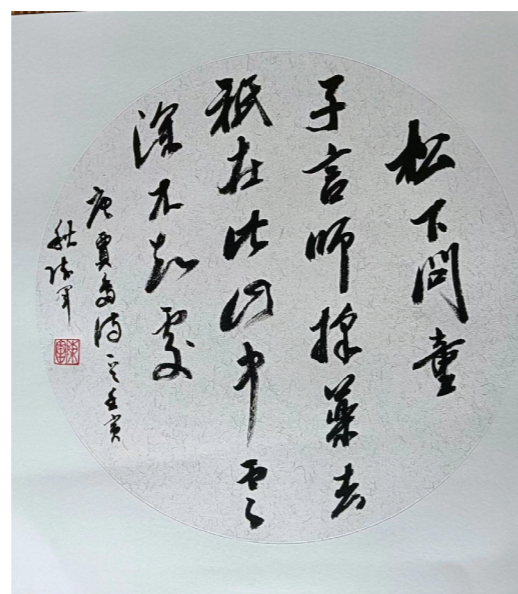 松下問童
子言師採藥去
祇在此山中雲
深不知處
唐賈島詩一首壬寅
秋